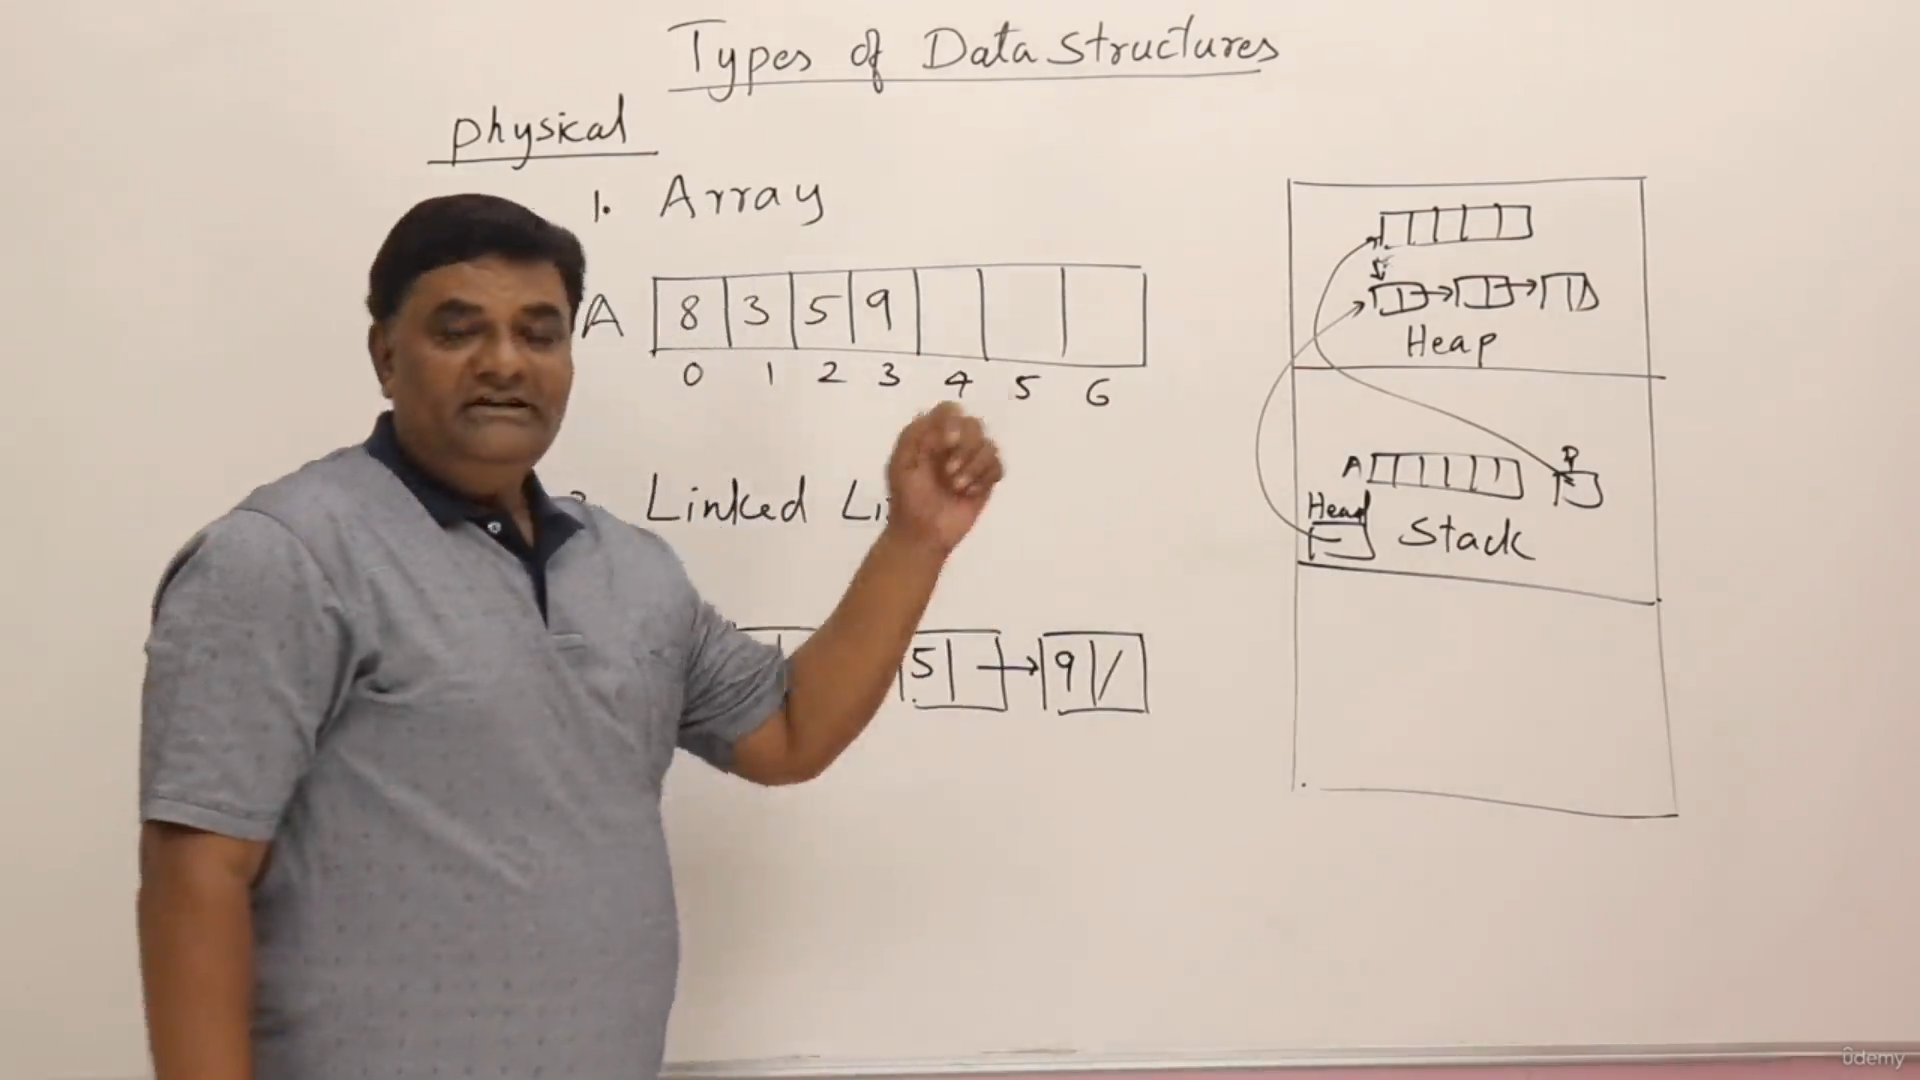 Types of Data Structures
physical
1. Array
A 8 3 5 9
0 1 2 3 4 5 6
Linked
5 9 /
Heap
A P
Head
Stack
ûdemy